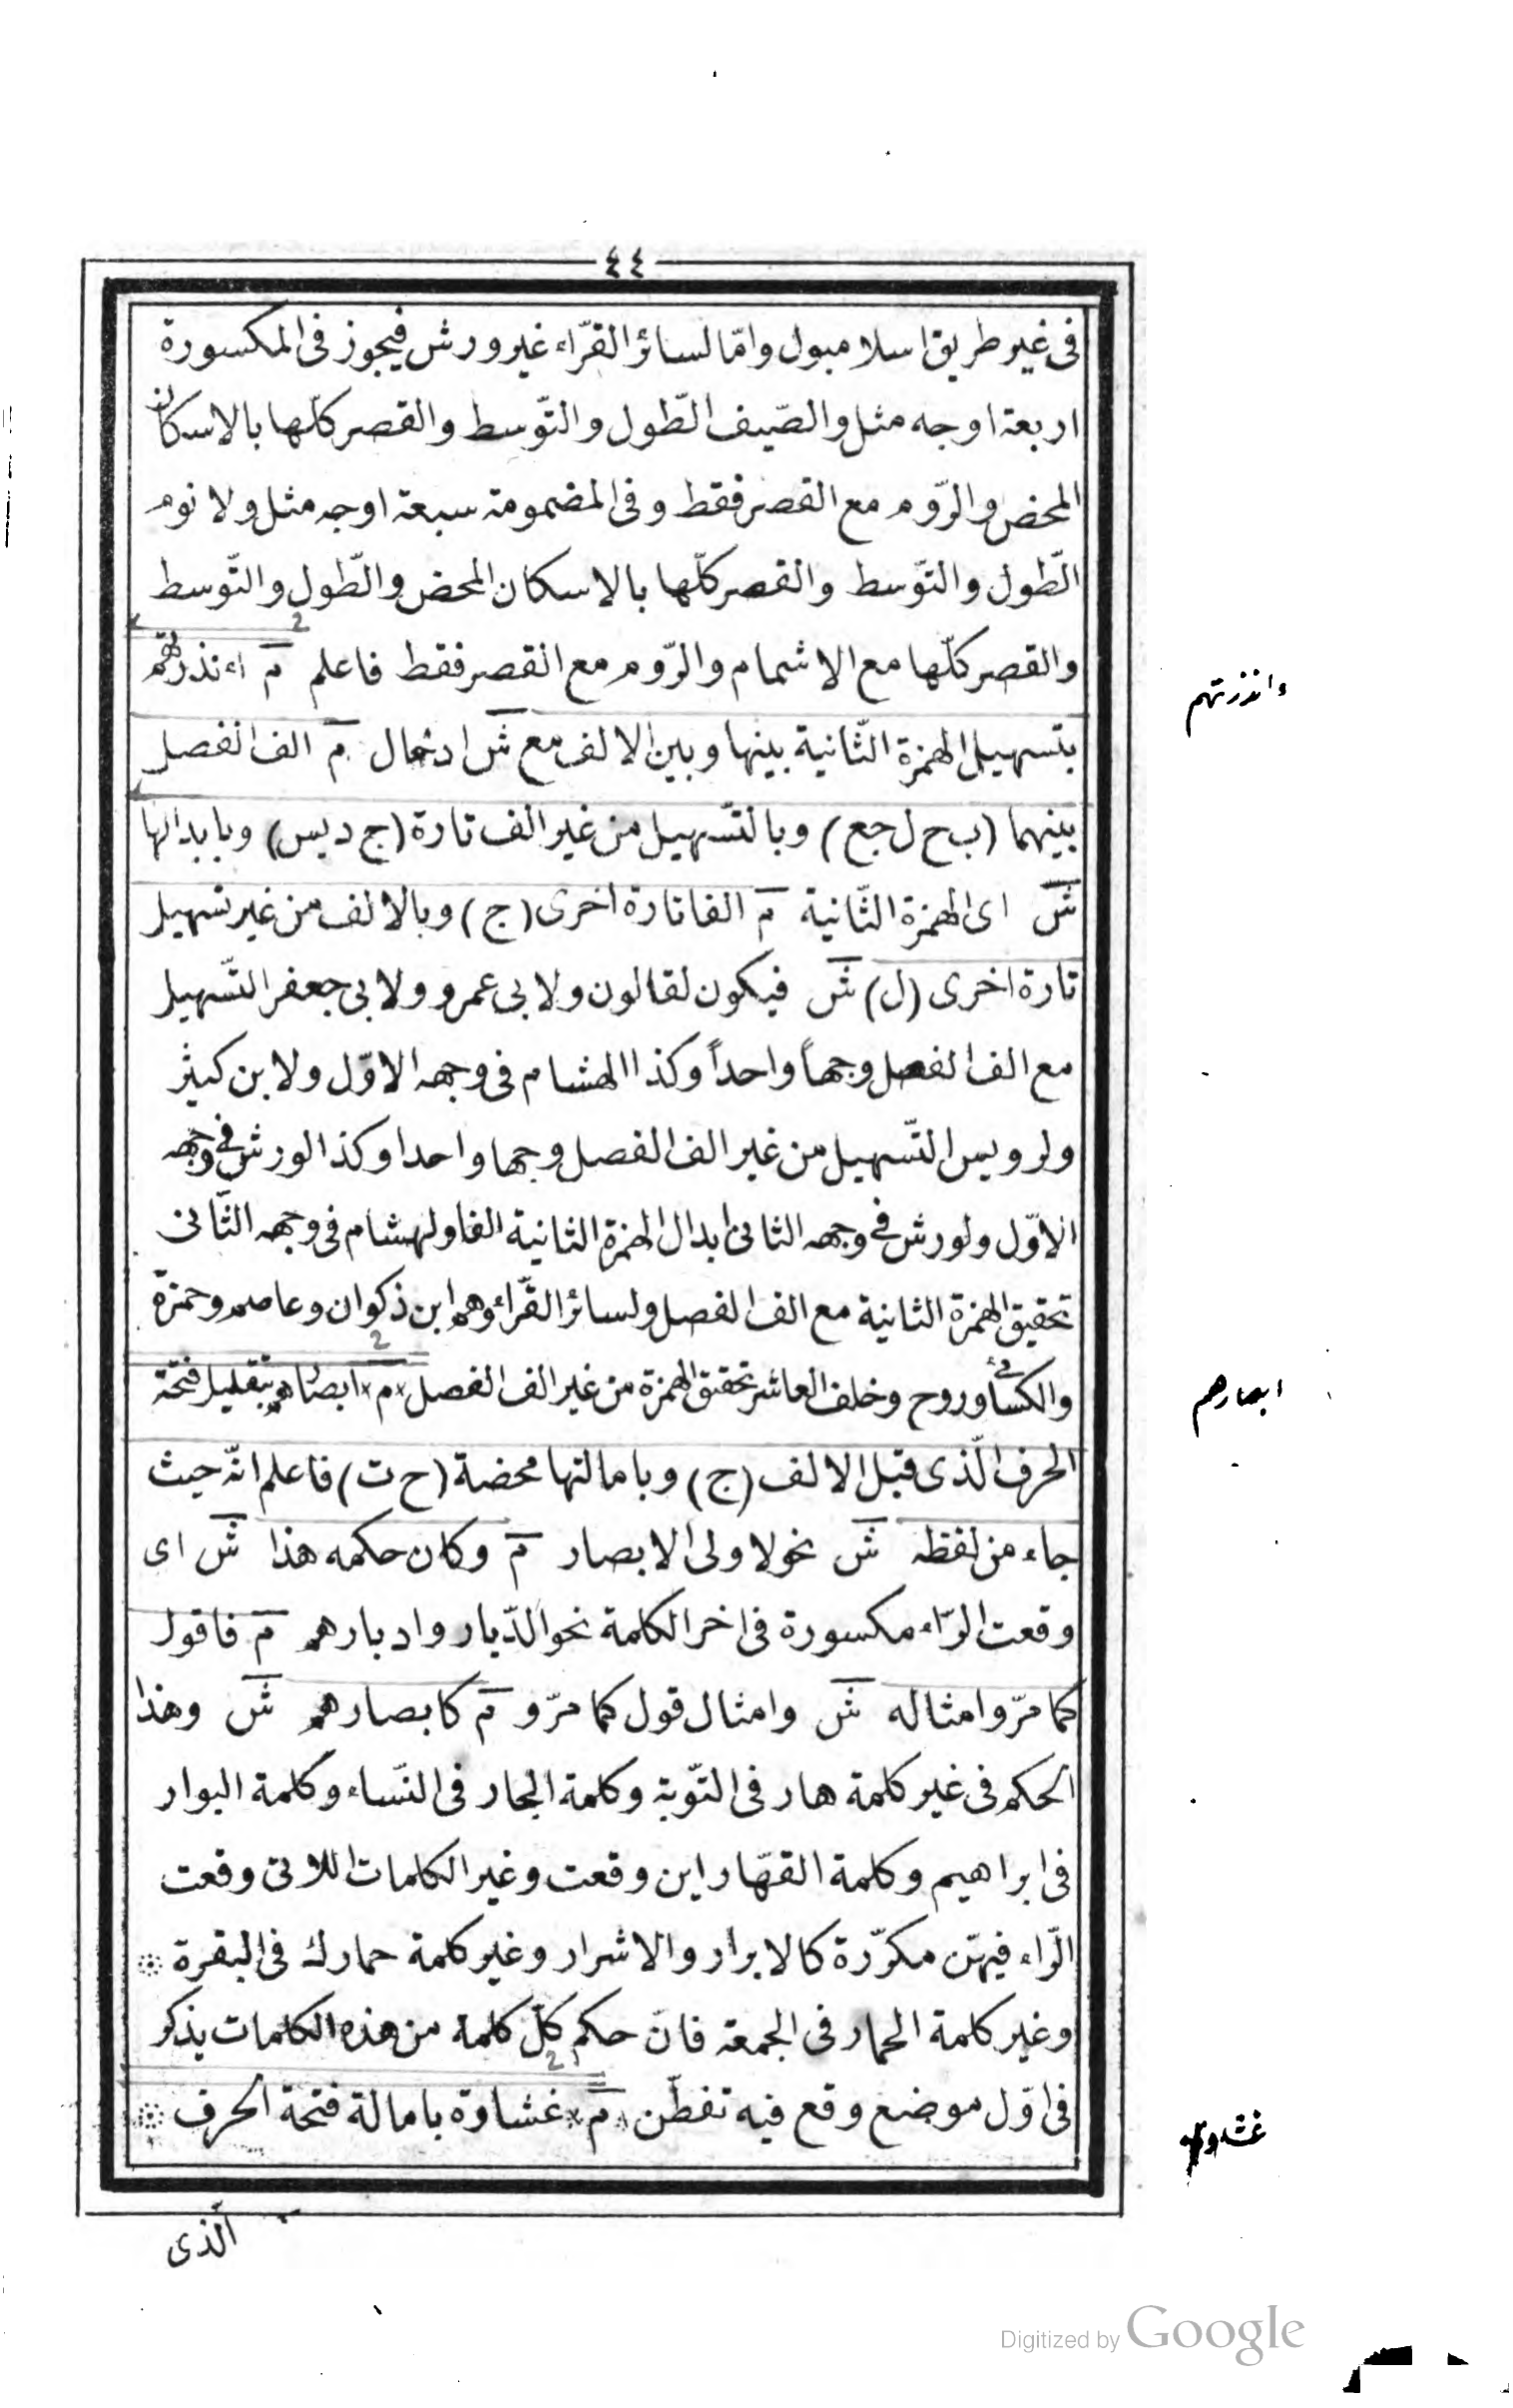 ٤٤
فى غير طريق اسلامبول وامّا لسائر القرّاء غير ورش فيجوز فى المكسورة
اربعة اوجه مثل والصّيف الطّول والتّوسط والقصر كلّها بالاسكان
المحض والرّوم مع القصر فقط وفى المضمومة سبعة اوجه مثل ولا نوم
الطّول والتّوسط والقصر كلّها بالاسكان المحض والطّول والتّوسط
والقصر كلّها مع الاشمام والرّوم مع القصر فقط فاعلم م ءانذرتهم
ءانذرتهم
بتسهيل الهمزة الثّانية بينها وبين الالف مع ش ادخال م الف الفصل
بينهما (ب ح ل جع) وبالتّسهيل من غير الف تارة (ج د يس) وبابدالها
ش اى الهمزة الثّانية م الفا تارة اخرى (ج) وبالالف من غير تسهيل
تارة اخرى (ل) ش فيكون لقالون ولابى عمرو ولابى جعفر التّسهيل
مع الف الفصل وجهاً واحداً وكذا الهشام فى وجهه الاوّل ولابن كيثر
ولرويس التّسهيل من غير الف الفصل وجها واحدا وكذا لورش فى وجهه
الاوّل ولورش فى وجهه الثانى ابدال الهمزة الثانية الفا ولهشام فى وجهه الثّانى
تحقيق الهمزة الثانية مع الف الفصل ولسائر القرّاء وهم ابن ذكوان وعاصم وحمزة
والكسائى وروح وخلف العاشر تحقيق الهمزة من غير الف الفصل م ابصارهم بتقليل فتحة
ابصارهم
الحرف الّذى قبل الالف (ج) وبامالتها محضة (ح ت) فاعلم انّه حيث
جاء من لفظه ش نحو لاولى الابصار م وكان حكمه هذا ش اى
وقعت الرّاء مكسورة فى اخر الكلمة نحو الدّيار وادبارهم م فاقول
كما مرّ وامثاله ش وامثال قول كما مرّ و م كابصارهم ش وهذا
الحكم فى غير كلمة هار فى التّوبة وكلمة الجار فى النّساء وكلمة البوار
فى ابراهيم وكلمة القهّار اين وقعت وغير الكلمات اللاتى وقعت
الرّاء فيهنّ مكرّرة كالابرار والاشرار وغير كلمة حمارك فى البقرة
وغير كلمة الحمار فى الجمعة فانّ حكم كلّ كلمة من هذه الكلمات يذكر
فى اوّل موضع وقع فيه تفطّن م غشاوة بامالة فتحة الحرف
غشاوة
الّذى
Digitized by Google